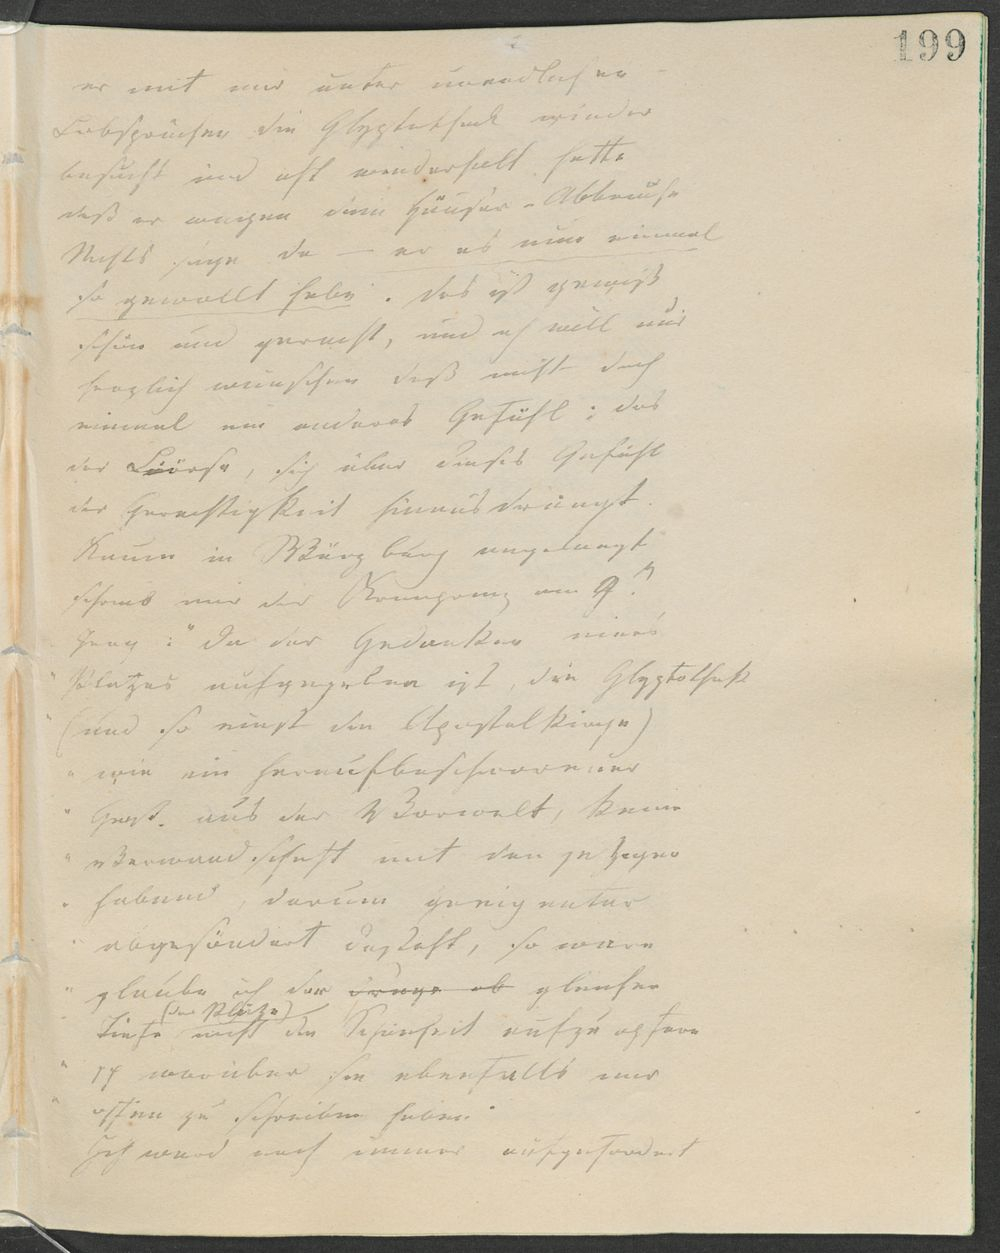 199
er mit mir unter unendlichen
Lobsprüchen die Glyptothek wieder
besucht und oft wiederholt hatte
daß er wegen dem Häuser-Abbruche
Nichts sage da — er es nun einmal
so gewollt habe. Das ist gewiß
schön und gerecht, und ich will nur
herzlich wünschen daß nicht doch
einmal ein anderes Gefühl: das
der Börse, sich über dieses Gefühl
der Gerechtigkeit hinaus drängt.
Kaum in Würzburg angelangt
schrieb mir der Kronprinz am 9ⁿ
: "Da der Gedanken eines
" Platzes aufgegeben ist, die Glyptothek
" (und so einst die Apostelkirche)
" wie ein heraufbeschworener
" Geist aus der Vorwelt, keine
" Verwandschaft mit den jetzigen
" habend, darum geeigneter
" abgesöndert dasteht, so wäre
" glaube ich der gleichen
(des Platzes)
Tiefe nicht die Schönheit aufzuopfern
" worüber sie ebenfalls mir
" offen zu schreiben haben."
Ich ward noch immer aufgefordert